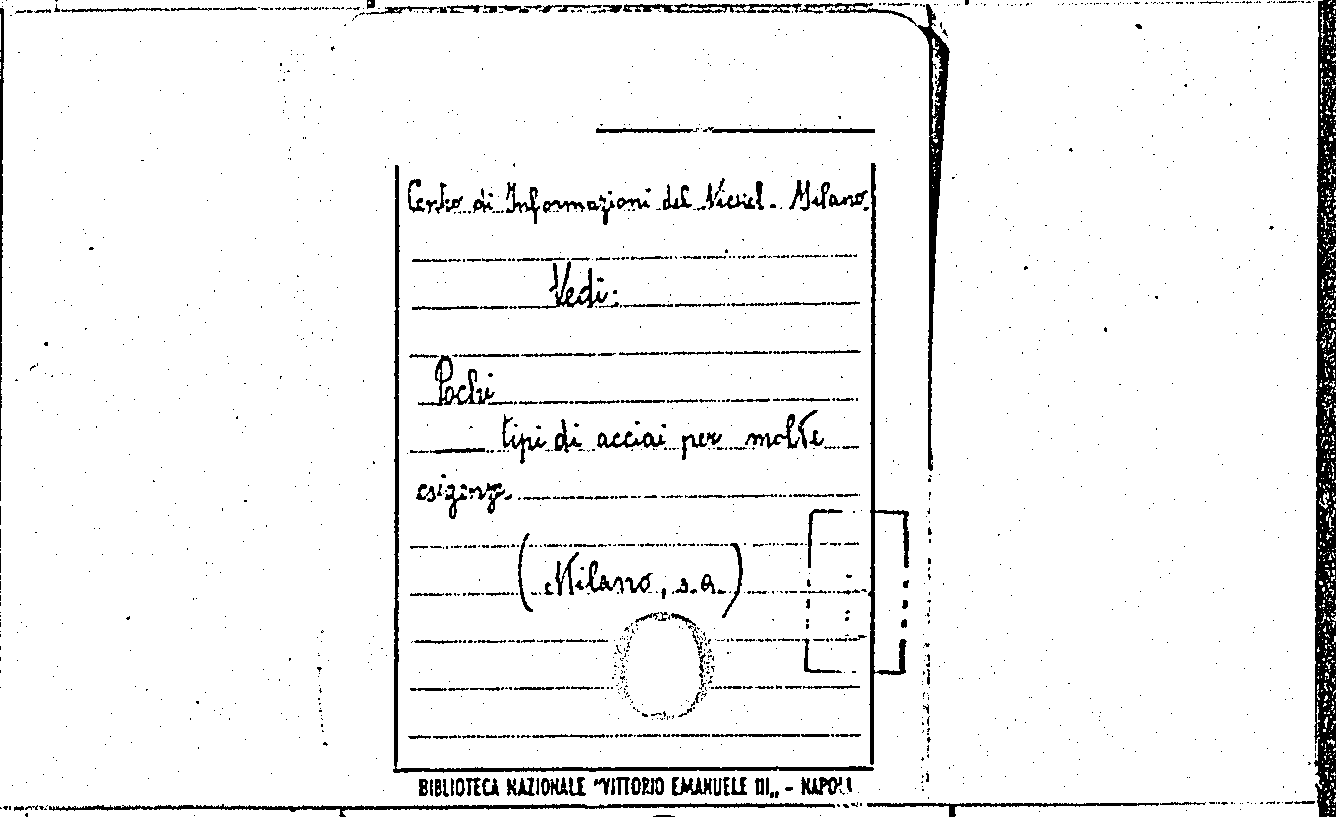 Centro di Informazioni del Nichel - Milano.
Vedi:
Pochi
tipi di acciai per molte
esigenze.
(Milano, s.a.)
BIBLIOTECA NAZIONALE "VITTORIO EMANUELE III„ - NAPOLI